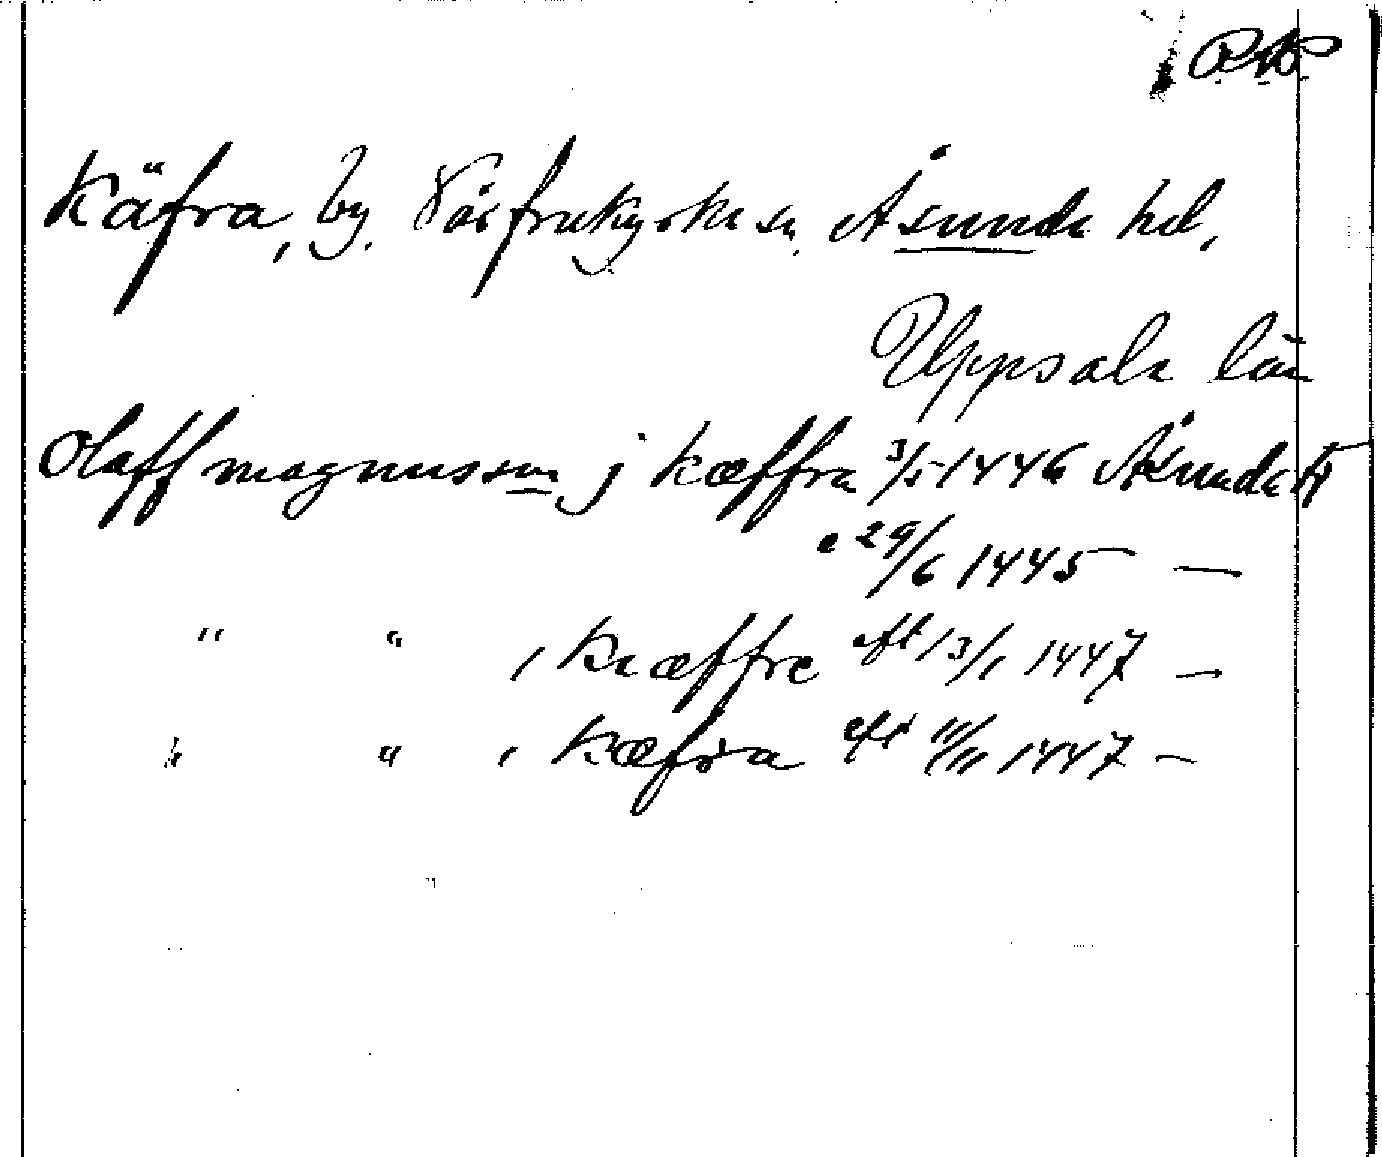 Käfra, by. Vårfrukyrka sn. Åsunda hd.
Uppsala län
Olaff magnusson j kæffra 3/5 1446 Åsunda
e 29/6 1445 —
" " , kæffre eft 13/1 1447 —
" " , kæfra eft 11/11 1447 —